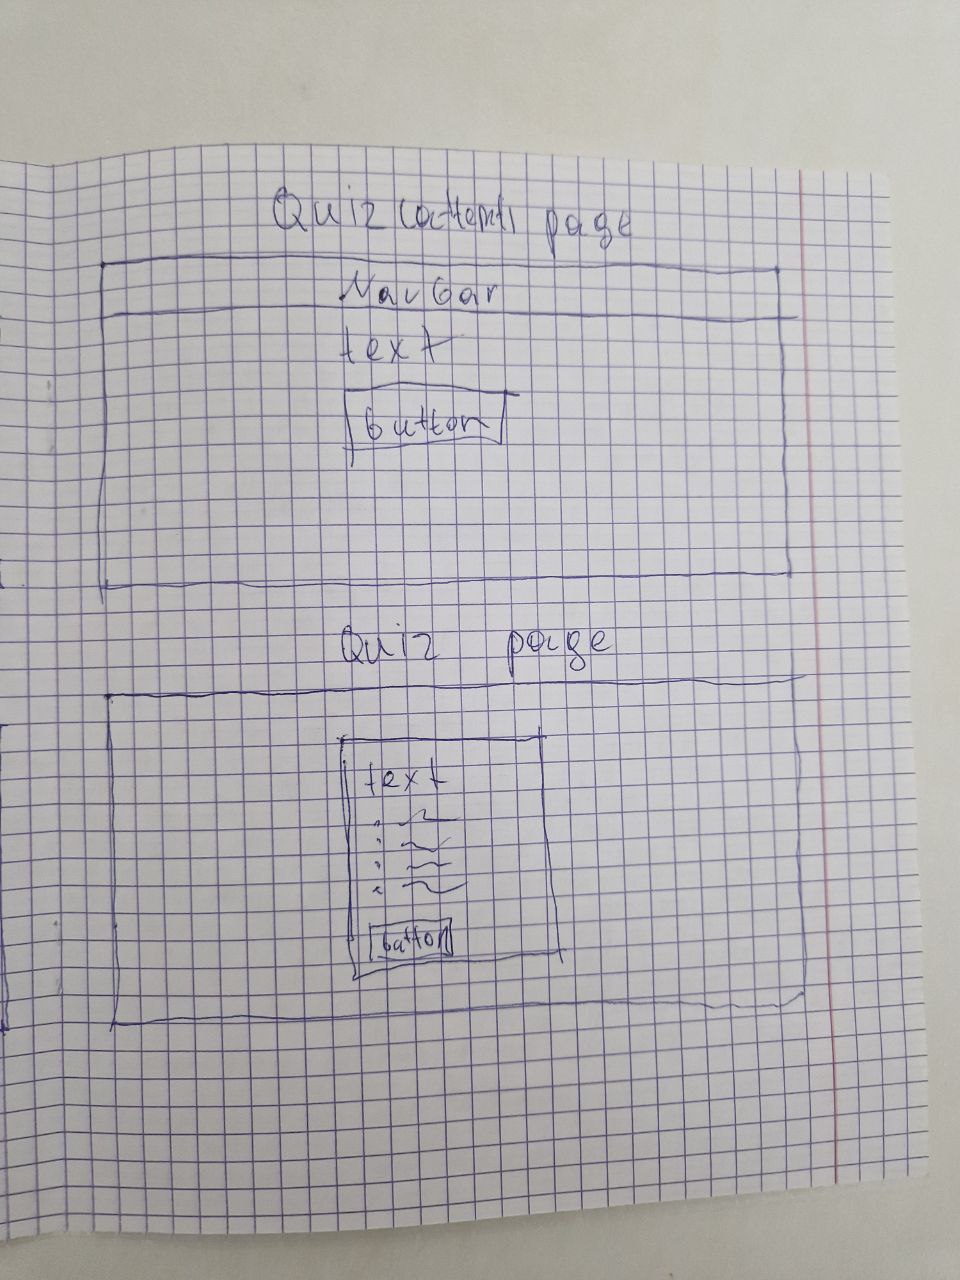 Quiz (attemt) page
Navbar
text
button
Quiz page
text
button